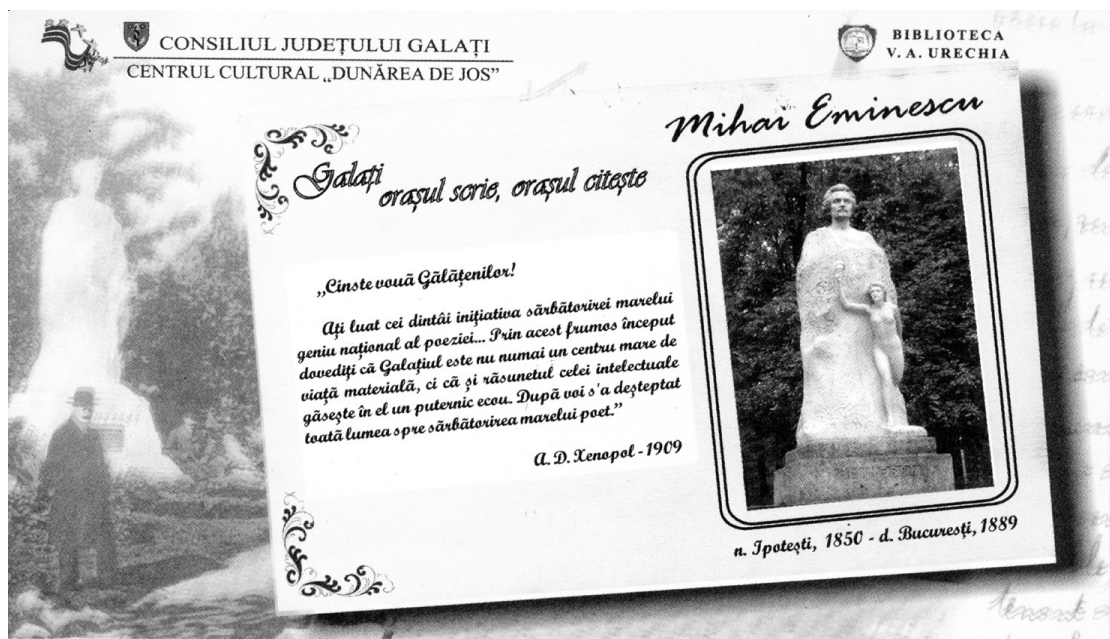 CONSILIUL JUDEŢULUI GALAŢI
CENTRUL CULTURAL „DUNĂREA DE JOS”
BIBLIOTECA
V. A. URECHIA
Mihai Eminescu
Galaţi
oraşul scrie, oraşul citeşte
„Cinste vouã Gãlãţenilor!
Aţi luat cei dintâi iniţiativa sãrbãtorirei marelui
geniu naţional al poeziei... Prin acest frumos început
dovediţi cã Galaţiul este nu numai un centru mare de
viaţã materialã, ci cã şi rãsunetul celei intelectuale
gãseşte în el un puternic ecou. Dupã voi s'a deşteptat
toatã lumea spre sãrbãtorirea marelui poet.”
A. D. Xenopol - 1909
EMINESCU
n. Ipoteşti, 1850 - d. Bucureşti, 1889